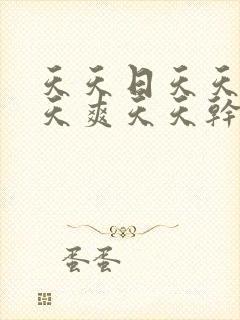 天天日天天
天爽天天幹
蛋蛋